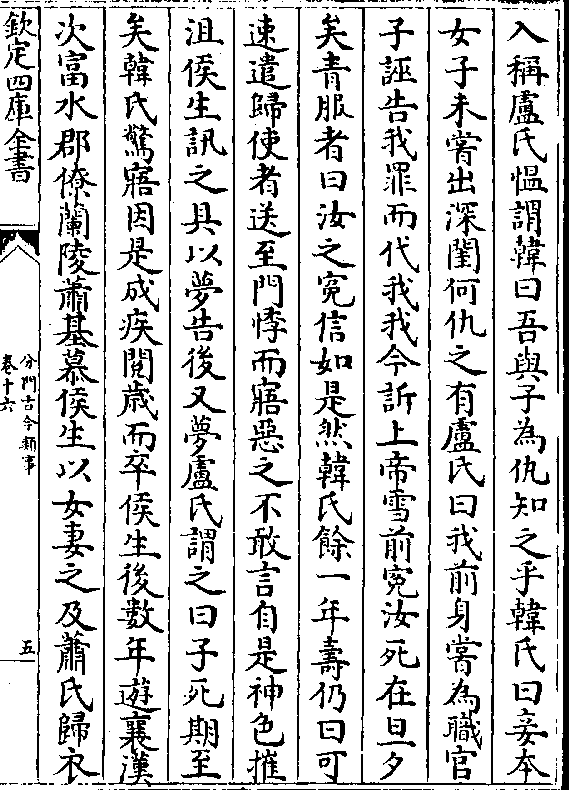 入稱盧氏愠謂韓曰吾與子為仇知之乎韓氏曰妾本
女子未嘗出深閨何仇之有盧氏曰我前身嘗為職官
子誣告我罪而代我我今訴上帝雪前寃汝死在旦夕
矣青服者曰汝之寃信如是然韓氏餘一年壽仍曰可
速遣歸使者送至門悸而寤惡之不敢言自是神色摧
沮侯生訊之具以夢告後又夢盧氏謂之曰子死期至
矣韓氏驚寤因是成疾閱歲而卒侯生後數年遊襄漢
次富水郡僚蘭陵蕭基慕侯生以女妻之及蕭氏歸衣
欽定四庫全書
分門古今類事
卷十六
五